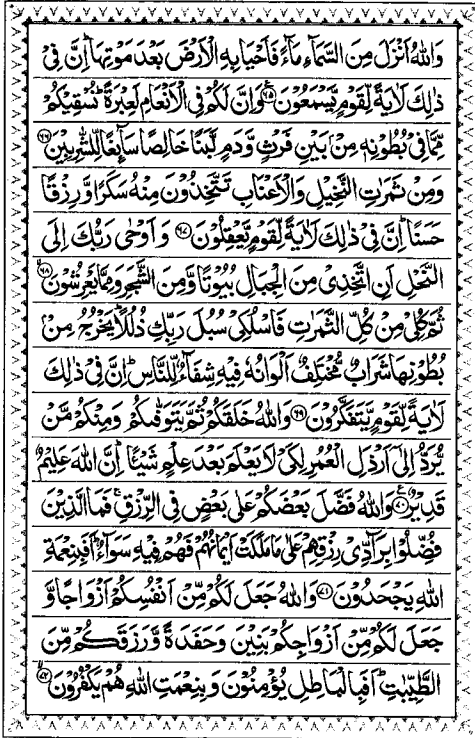 وَاللّٰهُ اَنْزَلَ مِنَ السَّمَآءِ مَآءً فَاَحْيَا بِهِ الْاَرْضَ بَعْدَ مَوْتِهَا ؕ اِنَّ فِيْ
ذٰلِكَ لَاٰيَةً لِّقَوْمٍ يَّسْمَعُوْنَ ﴿۶۵﴾ وَاِنَّ لَكُمْ فِي الْاَنْعَامِ لَعِبْرَةً ؕ نُسْقِيْكُمْ
مِّمَّا فِيْ بُطُوْنِهٖ مِنْۢ بَيْنِ فَرْثٍ وَّدَمٍ لَّبَنًا خَالِصًا سَآئِغًا لِّلشّٰرِبِيْنَ ﴿۶۶﴾
وَمِنْ ثَمَرٰتِ النَّخِيْلِ وَالْاَعْنَابِ تَتَّخِذُوْنَ مِنْهُ سَكَرًا وَّرِزْقًا
حَسَنًا ؕ اِنَّ فِيْ ذٰلِكَ لَاٰيَةً لِّقَوْمٍ يَّعْقِلُوْنَ ﴿۶۷﴾ وَاَوْحٰى رَبُّكَ اِلَى
النَّحْلِ اَنِ اتَّخِذِيْ مِنَ الْجِبَالِ بُيُوْتًا وَّمِنَ الشَّجَرِ وَمِمَّا يَعْرِشُوْنَ ﴿۶۸﴾
ثُمَّ كُلِيْ مِنْ كُلِّ الثَّمَرٰتِ فَاسْلُكِيْ سُبُلَ رَبِّكِ ذُلُلًا ؕ يَخْرُجُ مِنْۢ
بُطُوْنِهَا شَرَابٌ مُّخْتَلِفٌ اَلْوَانُهٗ فِيْهِ شِفَآءٌ لِّلنَّاسِ ؕ اِنَّ فِيْ ذٰلِكَ
لَاٰيَةً لِّقَوْمٍ يَّتَفَكَّرُوْنَ ﴿۶۹﴾ وَاللّٰهُ خَلَقَكُمْ ثُمَّ يَتَوَفّٰىكُمْ وَمِنْكُمْ مَّنْ
يُّرَدُّ اِلٰٓى اَرْذَلِ الْعُمُرِ لِكَيْ لَا يَعْلَمَ بَعْدَ عِلْمٍ شَيْئًا ؕ اِنَّ اللّٰهَ عَلِيْمٌ
قَدِيْرٌ ﴿۷۰﴾ وَاللّٰهُ فَضَّلَ بَعْضَكُمْ عَلٰى بَعْضٍ فِي الرِّزْقِ ۚ فَمَا الَّذِيْنَ
فُضِّلُوْا بِرَآدِّيْ رِزْقِهِمْ عَلٰى مَا مَلَكَتْ اَيْمَانُهُمْ فَهُمْ فِيْهِ سَوَآءٌ ؕ اَفَبِنِعْمَةِ
اللّٰهِ يَجْحَدُوْنَ ﴿۷۱﴾ وَاللّٰهُ جَعَلَ لَكُمْ مِّنْ اَنْفُسِكُمْ اَزْوَاجًا وَّ
جَعَلَ لَكُمْ مِّنْ اَزْوَاجِكُمْ بَنِيْنَ وَحَفَدَةً وَّرَزَقَكُمْ مِّنَ
الطَّيِّبٰتِ ؕ اَفَبِالْبَاطِلِ يُؤْمِنُوْنَ وَبِنِعْمَتِ اللّٰهِ هُمْ يَكْفُرُوْنَ ﴿۷۲﴾